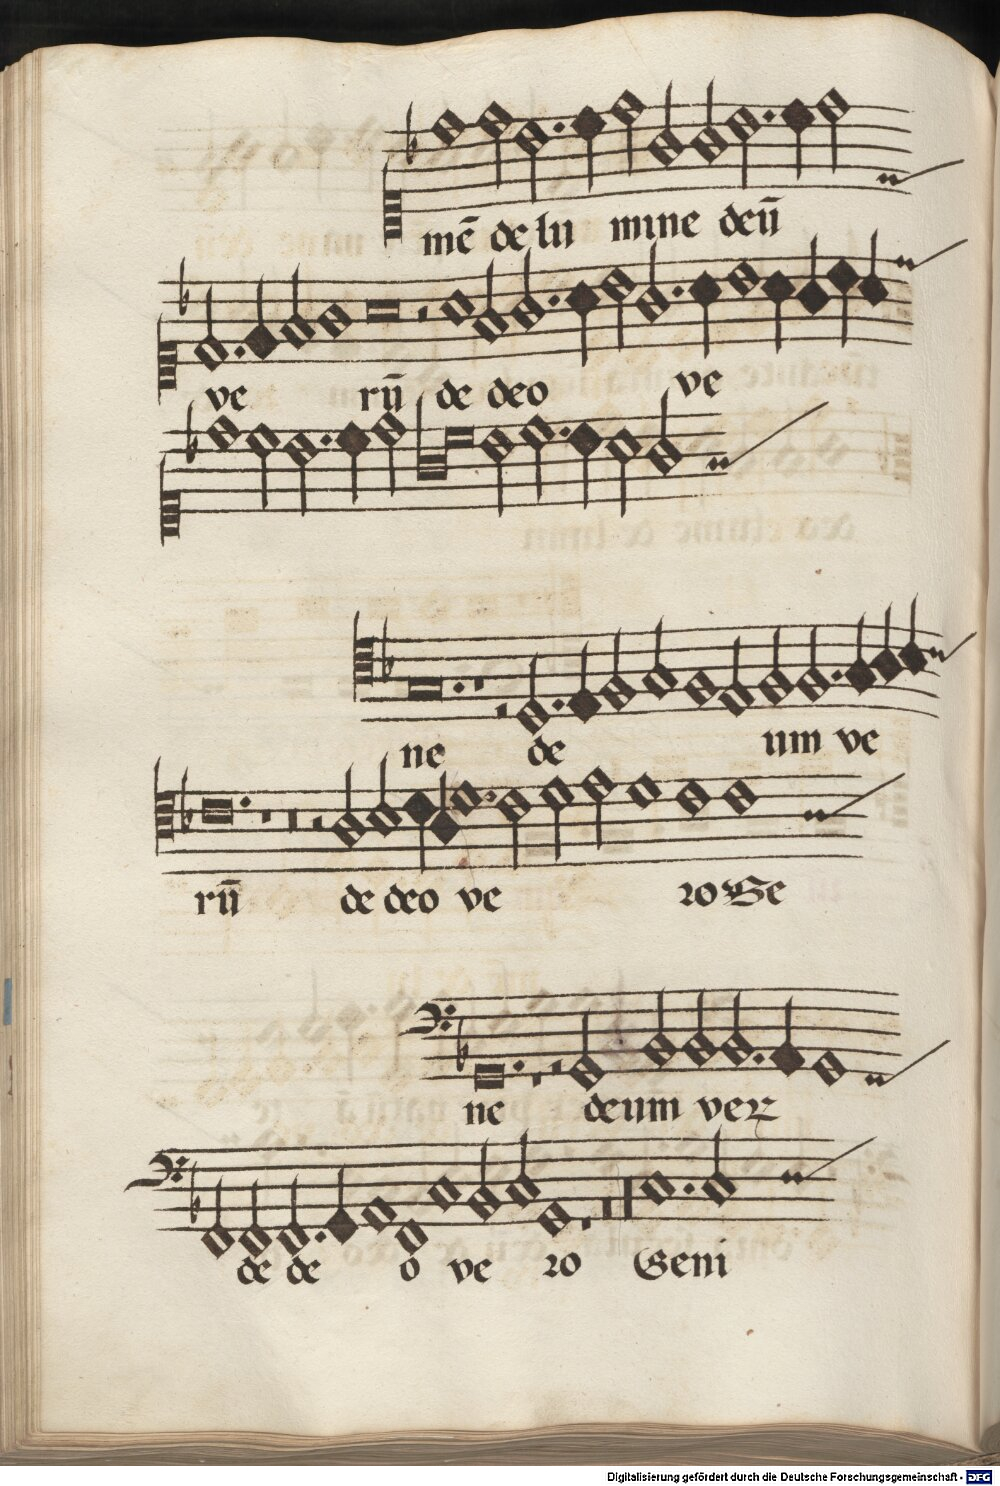 mē de lu mine deū
ve rū de deo ve
ne de um ve
rū de deo ve ro Ge
ne deum veꝝ
de de o ve ro Geni
Digitalisierung gefördert durch die Deutsche Forschungsgemeinschaft - DFG